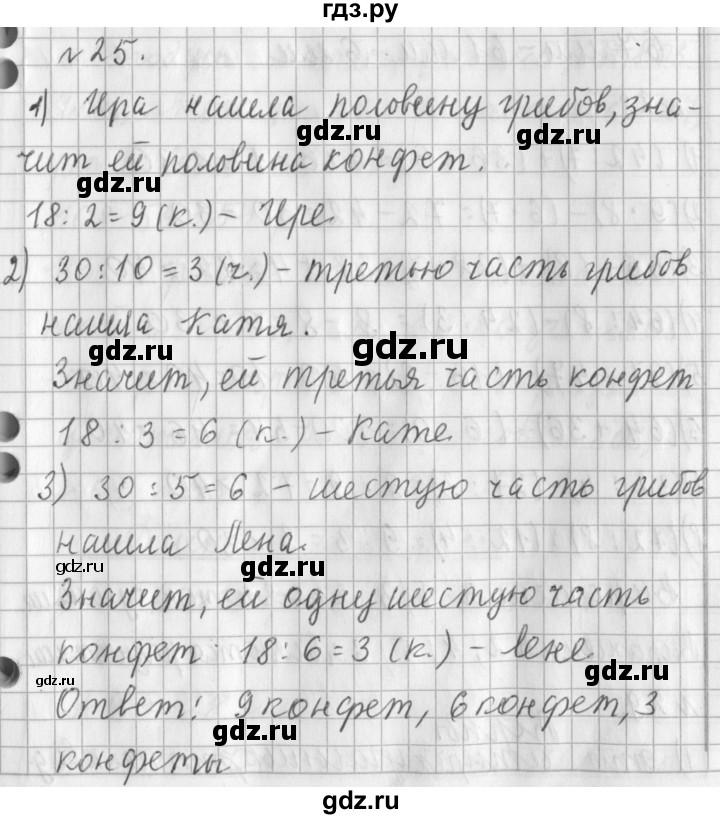 гдз.ру
№25.
1) Ира нашла половину грибов, зна-
gdz.ru
gdz.ru
чит ей половина конфет.
gdz.ru
18:2=9 (к.) - Ире.
gdz.ru
2) 30:10=3 (ч.) - третью часть грибов
нашла Катя.
gdz.ru
gdz.ru
Значит, ей третья часть конфет
18:3=6 (к.) - Кате.
gdz.ru
3) 30:5=6 - шестую часть грибов
нашла Лена.
gdz.ru
gdz.ru
Значит, ей одну шестую часть
конфет 18:6=3 (к.) - Лене.
gdz.ru
gdz.ru
Ответ: 9 конфет, 6 конфет, 3
gdz.ru
конфеты
gdz.ru